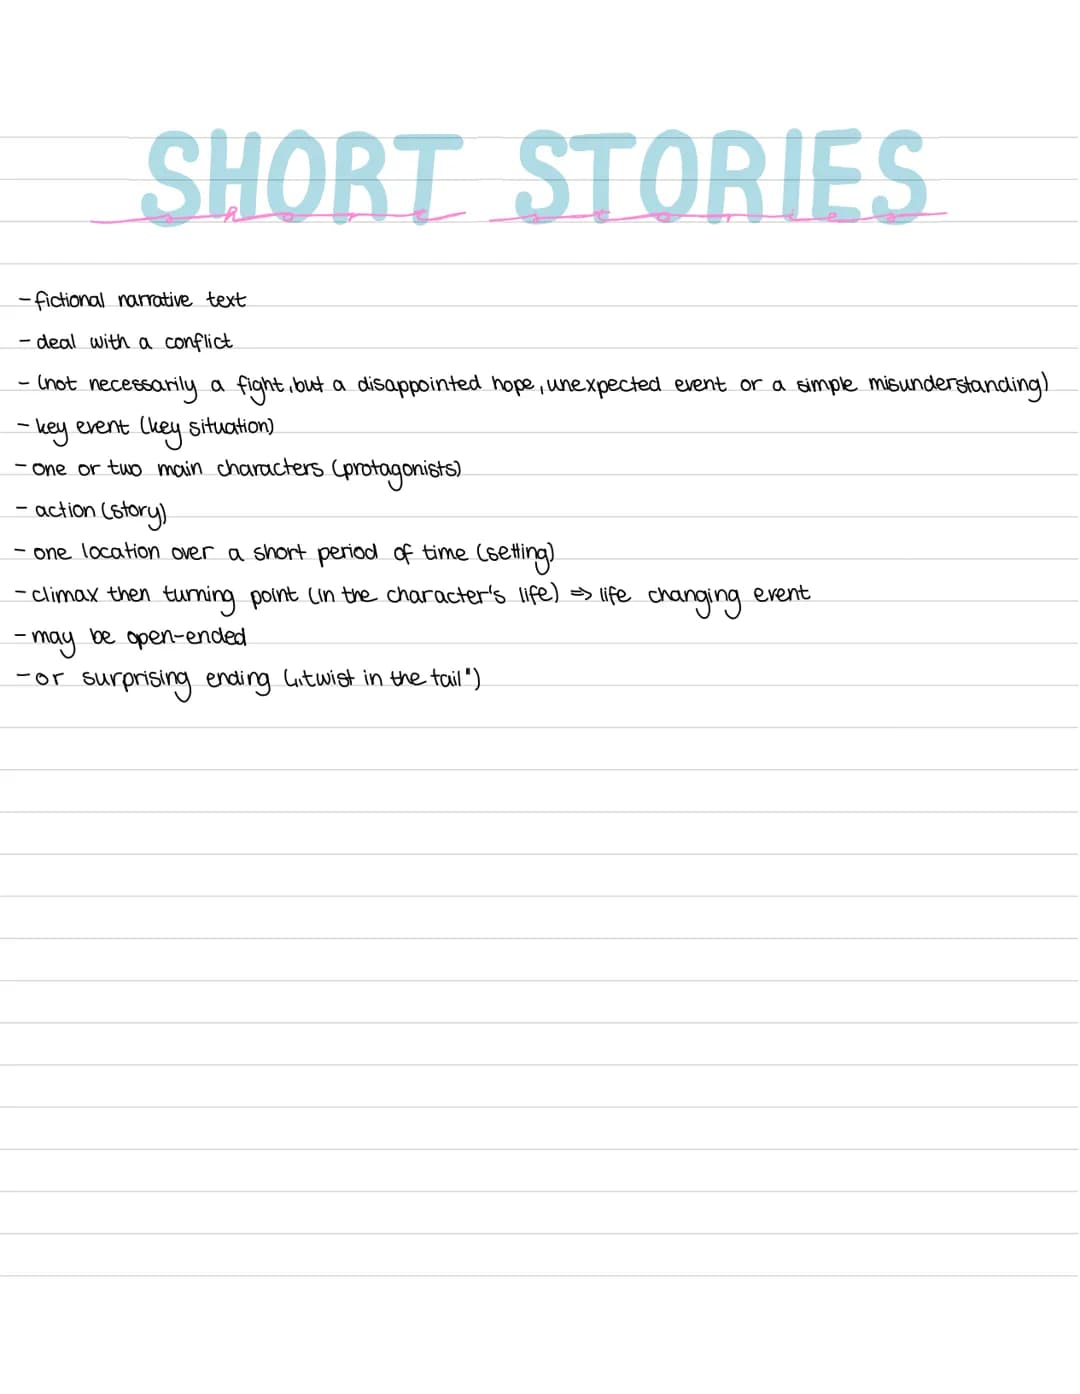 SHORT STORIES
short stories
- fictional narrative text
- deal with a conflict
- (not necessarily a fight, but a disappointed hope, unexpected event or a simple misunderstanding)
- key event (key situation)
- one or two main characters (protagonists)
- action (story)
- one location over a short period of time (setting)
- climax then turning point (in the character's life) => life changing event
- may be open-ended
- or surprising ending („twist in the tail")